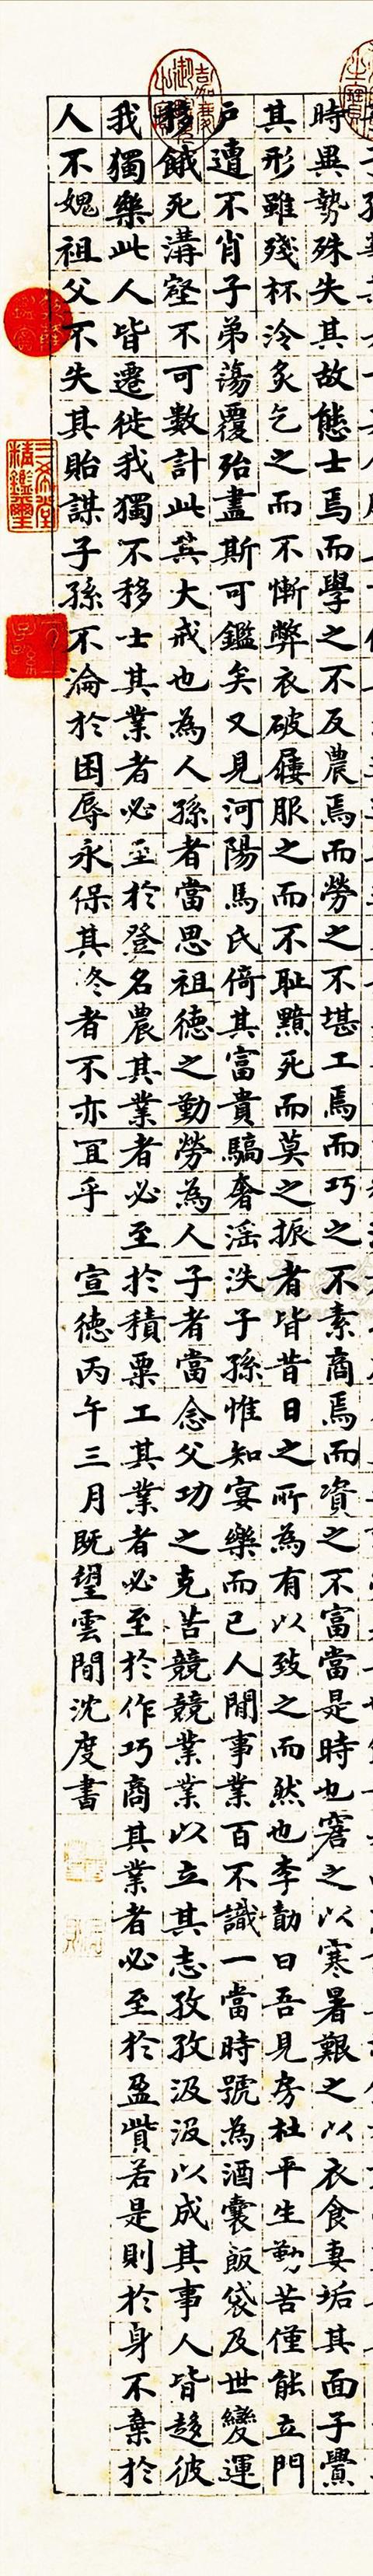 時異勢殊失其故態士焉而學之不反農焉而勞之不堪工焉而巧之不素商焉而資之不富當是時也窘之以寒暑艱之以衣食妻垢其面子釁
其形雖殘杯冷炙乞之而不慚弊衣破屨服之而不恥黯死而莫之振者皆昔日之所為有以致之而然也李勣曰吾見房杜平生勤苦僅能立門
戶遭不肖子弟蕩覆殆盡斯可鑑矣又見河陽馬氏倚其富貴驕奢淫泆子孫惟知宴樂而已人間事業百不識一當時號為酒囊飯袋及世變運
移餓死溝壑不可數計此其大戒也為人孫者當思祖德之勤勞為人子者當念父功之克苦競競業業以立其志孜孜汲汲以成其事人皆趍彼
我獨樂此人皆遷徙我獨不移士其業者必至於登名農其業者必至於積粟工其業者必至於作巧商其業者必至於盈貲若是則於身不棄於
人不媿祖父不失其貽謀子孫不淪於困辱永保其終者不亦宜乎 宣德丙午三月既望雲間沈度書